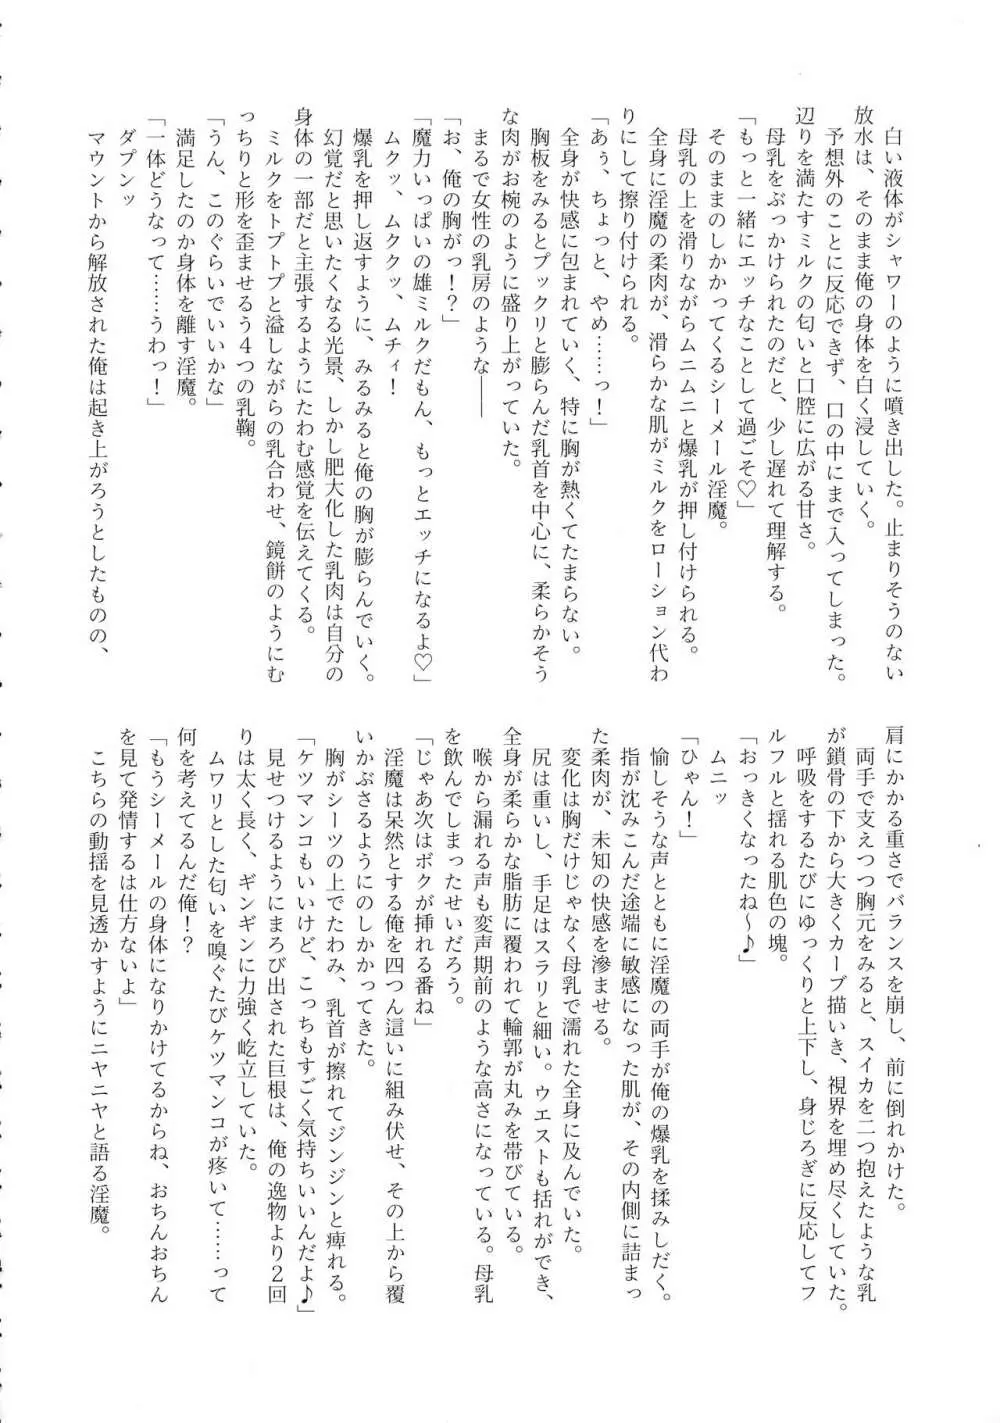 白い液体がシャワーのように噴き出した。止まりそうのない
放水は、そのまま俺の身体を白く浸していく。
予想外のことに反応できず、口の中にまで入ってしまった。
辺りを満たすミルクの匂いと口腔に広がる甘さ。
母乳をぶっかけられたのだと、少し遅れて理解する。
「もっと一緒にエッチなことして過ごそ♡」
そのままのしかかってくるシーメール淫魔。
母乳の上を滑りながらムニムニと爆乳が押し付けられる。
全身に淫魔の柔肉が、滑らかな肌がミルクをローション代わ
りにして擦り付けられる。
「あぅ、ちょっと、やめ……っ！」
全身が快感に包まれていく、特に胸が熱くてたまらない。
胸板をみるとプックリと膨らんだ乳首を中心に、柔らかそう
な肉がお椀のように盛り上がっていた。
まるで女性の乳房のような――
「お、俺の胸がっ！？」
「魔力いっぱいの雄ミルクだもん、もっとエッチになるよ♡」
ムクッ、ムククッ、ムチィ！
爆乳を押し返すように、みるみると俺の胸が膨らんでいく。
幻覚だと思いたくなる光景、しかし肥大化した乳肉は自分の
身体の一部だと主張するようにたわむ感覚を伝えてくる。
ミルクをトプトプと溢しながらの乳合わせ、鏡餅のようにむ
っちりと形を歪ませるう４つの乳鞠。
「うん、このぐらいでいいかな」
満足したのか身体を離す淫魔。
「一体どうなって……うわっ！」
ダプンッ
マウントから解放された俺は起き上がろうとしたものの、
肩にかかる重さでバランスを崩し、前に倒れかけた。
両手で支えつつ胸元をみると、スイカを二つ抱えたような乳
が鎖骨の下から大きくカーブ描いき、視界を埋め尽くしていた。
呼吸をするたびにゆっくりと上下し、身じろぎに反応してフ
ルフルと揺れる肌色の塊。
「おっきくなったね～♪」
ムニッ
「ひゃん！」
愉しそうな声とともに淫魔の両手が俺の爆乳を揉みしだく。
指が沈みこんだ途端に敏感になった肌が、その内側に詰まっ
た柔肉が、未知の快感を滲ませる。
変化は胸だけじゃなく母乳で濡れた全身に及んでいた。
尻は重いし、手足はスラリと細い。ウエストも括れができ、
全身が柔らかな脂肪に覆われて輪郭が丸みを帯びている。
喉から漏れる声も変声期前のような高さになっている。母乳
を飲んでしまったせいだろう。
「じゃあ次はボクが挿れる番ね」
淫魔は呆然とする俺を四つん這いに組み伏せ、その上から覆
いかぶさるようにのしかかってきた。
胸がシーツの上でたわみ、乳首が擦れてジンジンと痺れる。
「ケツマンコもいいけど、こっちもすごく気持ちいいんだよ♪」
見せつけるようにまろび出された巨根は、俺の逸物より２回
りは太く長く、ギンギンに力強く屹立していた。
ムワリとした匂いを嗅ぐたびケツマンコが疼いて……って
何を考えてるんだ俺！？
「もうシーメールの身体になりかけてるからね、おちんおちん
を見て発情するは仕方ないよ」
こちらの動揺を見透かすようにニヤニヤと語る淫魔。